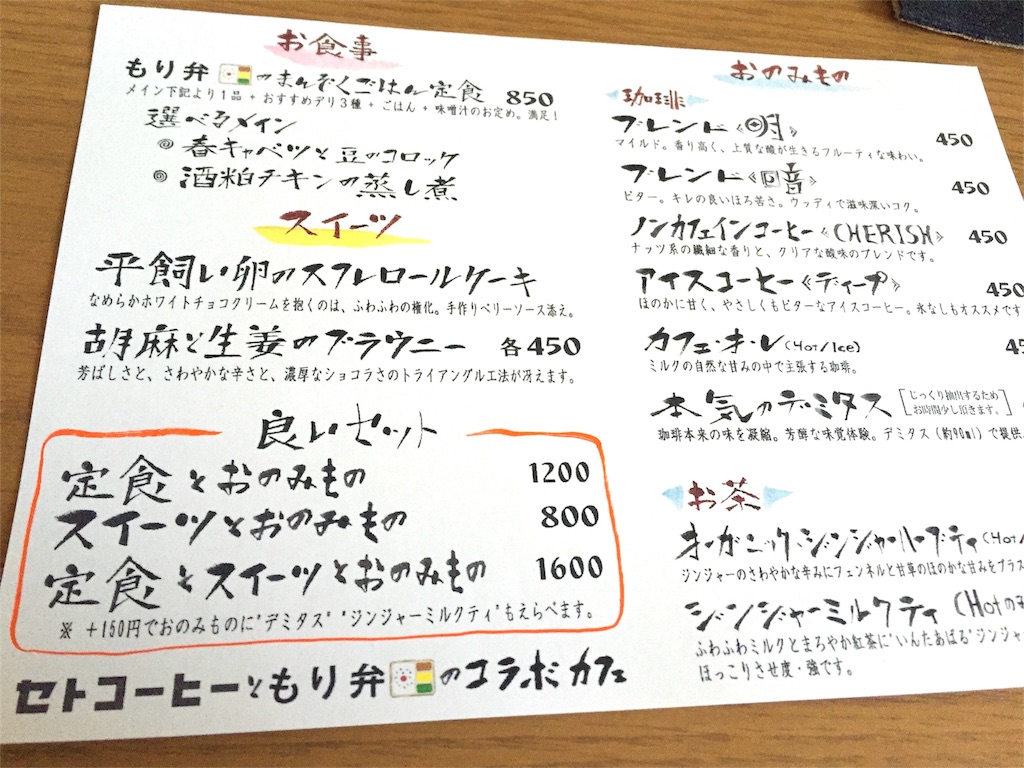 お食事
もり弁のまんぞくごはん定食 850
メイン下記より1品 + おすすめデリ3種 + ごはん + 味噌汁のお定め。満足!
選べるメイン
◎ 春キャベツと豆のコロッケ
◎ 酒粕チキンの蒸し煮
スイーツ
平飼い卵のスフレロールケーキ
なめらかホワイトチョコクリームを抱くのは、ふわふわの権化。手作りベリーソース添え。
胡麻と生姜のブラウニー 各450
芳ばしさと、さわやかな辛さと、濃厚なショコラさのトライアングル工法が冴えます。
良いセット
定食とおのみもの 1200
スイーツとおのみもの 800
定食とスイーツとおのみもの 1600
※ +150円でおのみものに"デミタス" "ジンジャーミルクティ"もえらべます。
セトコーヒーともり弁のコラボカフェ
おのみもの
珈琲
ブレンド《明》 450
マイルド。香り高く、上質な酸が生きるフルーティな味わい。
ブレンド《暗》 450
ビター。キレの良いほろ苦さ。ウッディで滋味深いコク。
ノンカフェインコーヒー《CHERISH》 450
ナッツ系の繊細な香りと、クリアな酸味のブレンドです。
アイスコーヒー《ディープ》 450
ほのかに甘く、やさしくもビターなアイスコーヒー。氷なしもオススメです
カフェ・オ・レ(Hot/Ice) 45
ミルクの自然な甘みの中で主張する珈琲。
本気のデミタス [じっくり抽出するためお時間少し頂きます。]
珈琲本来の味を凝縮。芳醇な味覚体験。デミタス(約90ml)で提供
お茶
オーガニックジンジャーハーブティ(Hot/
ジンジャーのさわやかな辛みにフェンネルと甘草のほのかな甘みをプラス
ジンジャーミルクティ(Hotのみ
ふわふわミルクとまろやか紅茶に"いんたあばる"ジンジャ
ほっこりさせ度・強です。